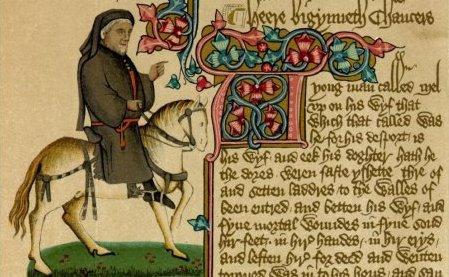 Heere bigynneth Chaucers
A yong man called Mel
up on his wyf that
Which that called was
he for his desport is
his wyf and eek his doghter hath he
the dores weren faste yshette thre of
and setten laddres to the walles of
been entred and betten his wyf and
fyue mortal woundes in fyue sond
hir feet in hir handes in hir erys
and leften hir for deed and wenten
torned was in to his hous and